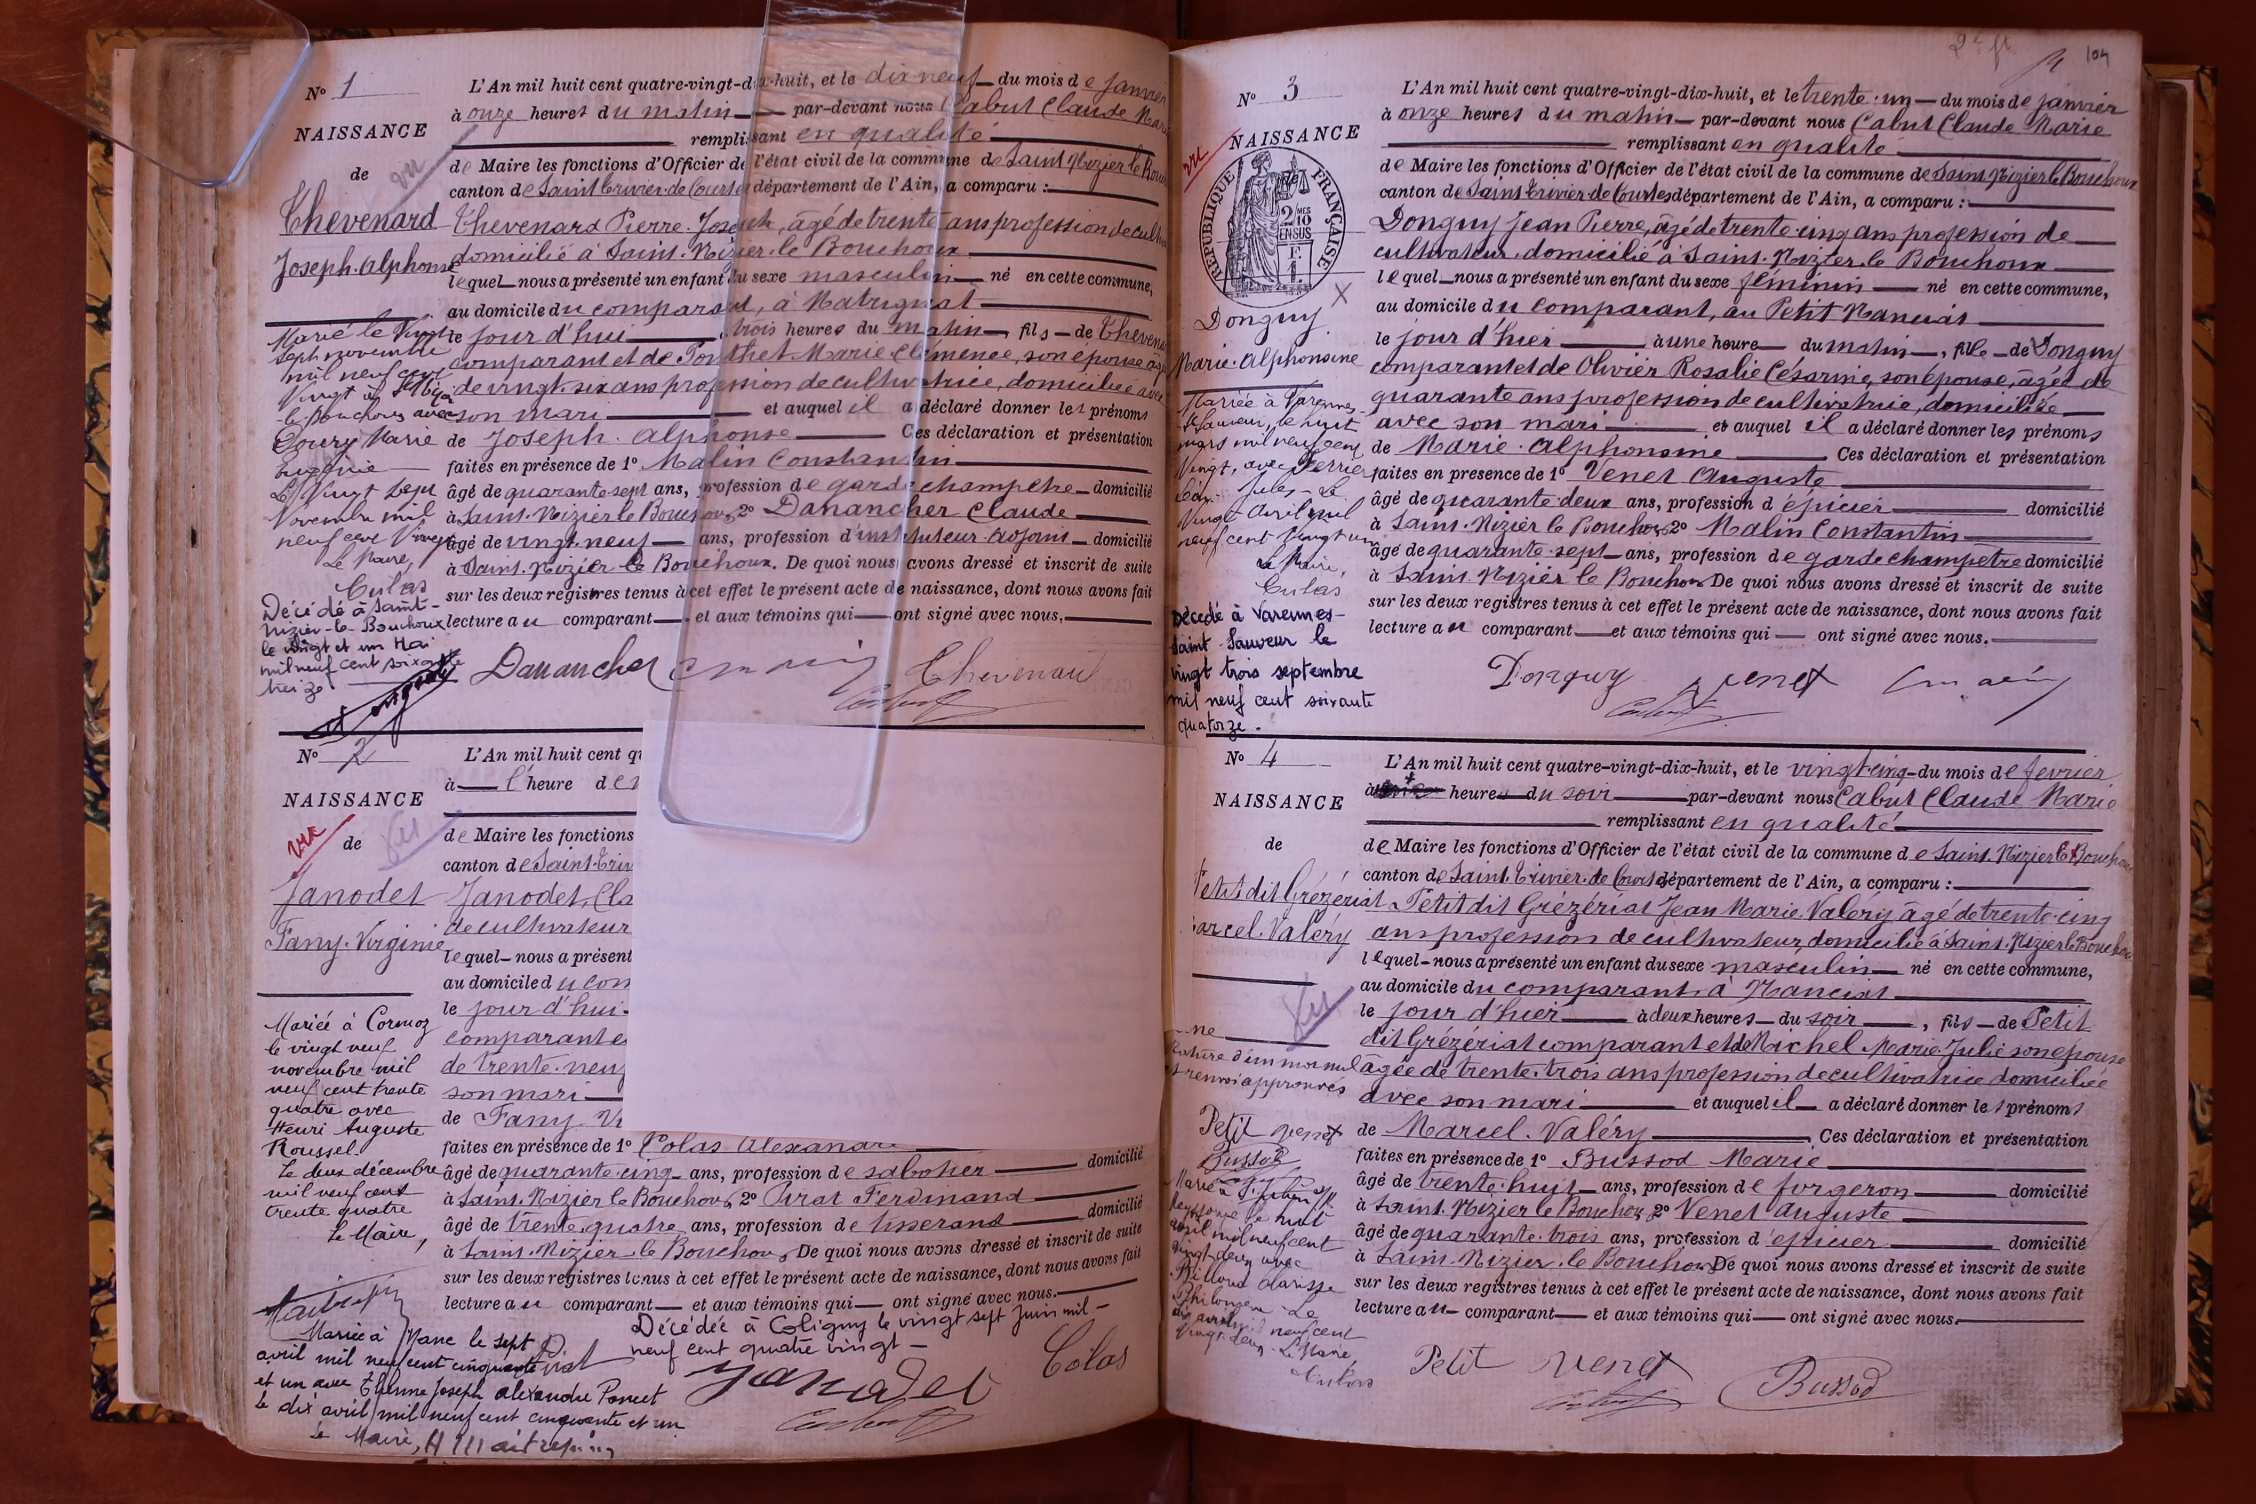 N° 1
NAISSANCE
de
vu
Thevenard
Joseph-Alphonse
Marié le Vingt
sept novembre
mil neuf cent
Vingt à St Nizier
le Bouchoux avec
Marie
Eugénie
Le Vingt sept
Novembre mil
neuf cent Vingt
Le Maire,
Culas
Décédé à Saint-
Nizier-le-Bouchoux
le vingt et un Mai
mil neuf cent soixante
treize
L'An mil huit cent quatre-vingt-dix-huit, et le dix neuf du mois de Janvier
à onze heures du matin par-devant nous Cabut Claude Marie
remplissant en qualité
de Maire les fonctions d'Officier de l'état civil de la commune de Saint Nizier le Bouchoux
canton de Saint Trivier-de-Courtes département de l'Ain, a comparu :
Thevenard Pierre-Joseph, âgé de trente ans profession de cultivateur
domicilié à Saint-Nizier-le Bouchoux
lequel nous a présenté un enfant du sexe masculin né en cette commune,
au domicile du comparant, à Matrignat
le jour d'hui à trois heures du matin, fils de Thevenard
comparant et de Ponthet Marie-Clémence, son épouse âgée
de vingt-six ans profession de cultivatrice, domiciliée avec
son mari et auquel il a déclaré donner les prénoms
de Joseph-Alphonse Ces déclaration et présentation
faites en présence de 1° Malin Constantin
âgé de quarante-sept ans, profession de garde champêtre domicilié
à Saint-Nizier le Bouchoux, 2° Danancher Claude
âgé de vingt-neuf ans, profession d'instituteur-adjoint domicilié
à Saint-Nizier le Bouchoux. De quoi nous avons dressé et inscrit de suite
sur les deux registres tenus à cet effet le présent acte de naissance, dont nous avons fait
lecture au comparant et aux témoins qui ont signé avec nous.
Danancher Thevenard
N° 2
NAISSANCE
vu
de
vu
Janodet
Fany-Virginie
Mariée à Cormoz
le vingt neuf
novembre mil
neuf cent trente
quatre avec
Henri Auguste
Roussel
Le deux décembre
mil neuf cent
trente quatre
Le Maire,
L'An mil huit cent qu
à l'heure de
de Maire les fonctions
canton de Saint-Triv
Janodet, Cla
de cultivateur
lequel nous a présent
au domicile du com
le jour d'hui
comparant e
de trente-neuf
son mari
de Fany-Vi
faites en présence de 1° Colas Alexandre
âgé de quarante-cinq ans, profession de sabotier domicilié
à Saint-Nizier le Bouchoux, 2° Pirat Ferdinand
âgé de trente-quatre ans, profession de tisserand domicilié
à Saint-Nizier-le Bouchoux. De quoi nous avons dressé et inscrit de suite
sur les deux registres tenus à cet effet le présent acte de naissance, dont nous avons fait
lecture au comparant et aux témoins qui ont signé avec nous.
Décédée à Coligny le vingt sept Juin mil
neuf cent quatre vingt
Mariée à Nanc le sept
avril mil neuf cent cinquante
et un avec Etienne Joseph Alexandre Poncet
le dix avril mil neuf cent cinquante et un
Le Maire,
Pirat Janodet Colas
104
N° 3
vu
NAISSANCE
RÉPUBLIQUE FRANÇAISE
2 MES 10
EN SUS
Donguy
Marie-Alphonsine
Mariée à Varennes-
St Sauveur, le huit
mars mil neuf cent
Vingt, avec Perrier
Jules - Le
Vingt Avril mil
neuf cent Vingt un
Le Maire,
Culas
Décédé à Varennes-
Saint-Sauveur le
vingt trois septembre
mil neuf cent soixante
quatorze.
L'An mil huit cent quatre-vingt-dix-huit, et le trente-un du mois de Janvier
à onze heures du matin par-devant nous Cabut Claude Marie
remplissant en qualité
de Maire les fonctions d'Officier de l'état civil de la commune de Saint-Nizier le Bouchoux
canton de Saint-Trivier-de-Courtes département de l'Ain, a comparu :
Donguy Jean Pierre, âgé de trente-cinq ans profession de
cultivateur, domicilié à Saint-Nizier-le Bouchoux
lequel nous a présenté un enfant du sexe féminin né en cette commune,
au domicile du comparant, au Petit Manciat
le jour d'hier à une heure du matin, fille de Donguy
comparant et de Olivier Rosalie Césarine, son épouse, âgée de
quarante ans profession de cultivatrice, domiciliée
avec son mari et auquel il a déclaré donner les prénoms
de Marie-Alphonsine Ces déclaration et présentation
faites en présence de 1° Venet Auguste
âgé de quarante-deux ans, profession d'épicier domicilié
à Saint-Nizier le Bouchoux, 2° Malin Constantin
âgé de quarante-sept ans, profession de garde champêtre domicilié
à Saint-Nizier le Bouchoux. De quoi nous avons dressé et inscrit de suite
sur les deux registres tenus à cet effet le présent acte de naissance, dont nous avons fait
lecture au comparant et aux témoins qui ont signé avec nous.
Donguy Venet
N° 4
NAISSANCE
de
Petit dit Grézériat
Marcel-Valéry
vu
Rature d'un mot nul
et renvoi approuvés
Petit Venet
Bussod
Marié à St Julien s/
Reyssouze le huit
avril mil neuf cent
vingt-deux avec
Billoud Clarisse
Philomène Le
dix avril mil neuf cent
Vingt-deux. Le Maire
Culas
L'An mil huit cent quatre-vingt-dix-huit, et le vingt-cinq du mois de février
à heures du soir par-devant nous Cabut Claude Marie
remplissant en qualité
de Maire les fonctions d'Officier de l'état civil de la commune de Saint-Nizier le Bouchoux
canton de Saint-Trivier-de Courtes département de l'Ain, a comparu :
Petit dit Grézériat Jean Marie-Valéry âgé de trente-cinq
ans profession de cultivateur, domicilié à Saint-Nizier le Bouchoux
lequel nous a présenté un enfant du sexe masculin né en cette commune,
au domicile du comparant, à Manciat
le jour d'hier à deux heures du soir, fils de Petit
dit Grézériat comparant et de Michel Marie-Julie son épouse
âgée de trente-trois ans profession de cultivatrice domiciliée
avec son mari et auquel il a déclaré donner les prénoms
de Marcel-Valéry Ces déclaration et présentation
faites en présence de 1° Bussod Marie
âgé de trente-huit ans, profession de forgeron domicilié
à Saint-Nizier le Bouchoux, 2° Venet Auguste
âgé de quarante-trois ans, profession d'épicier domicilié
à Saint-Nizier-le Bouchoux. De quoi nous avons dressé et inscrit de suite
sur les deux registres tenus à cet effet le présent acte de naissance, dont nous avons fait
lecture au comparant et aux témoins qui ont signé avec nous.
Petit Venet Bussod